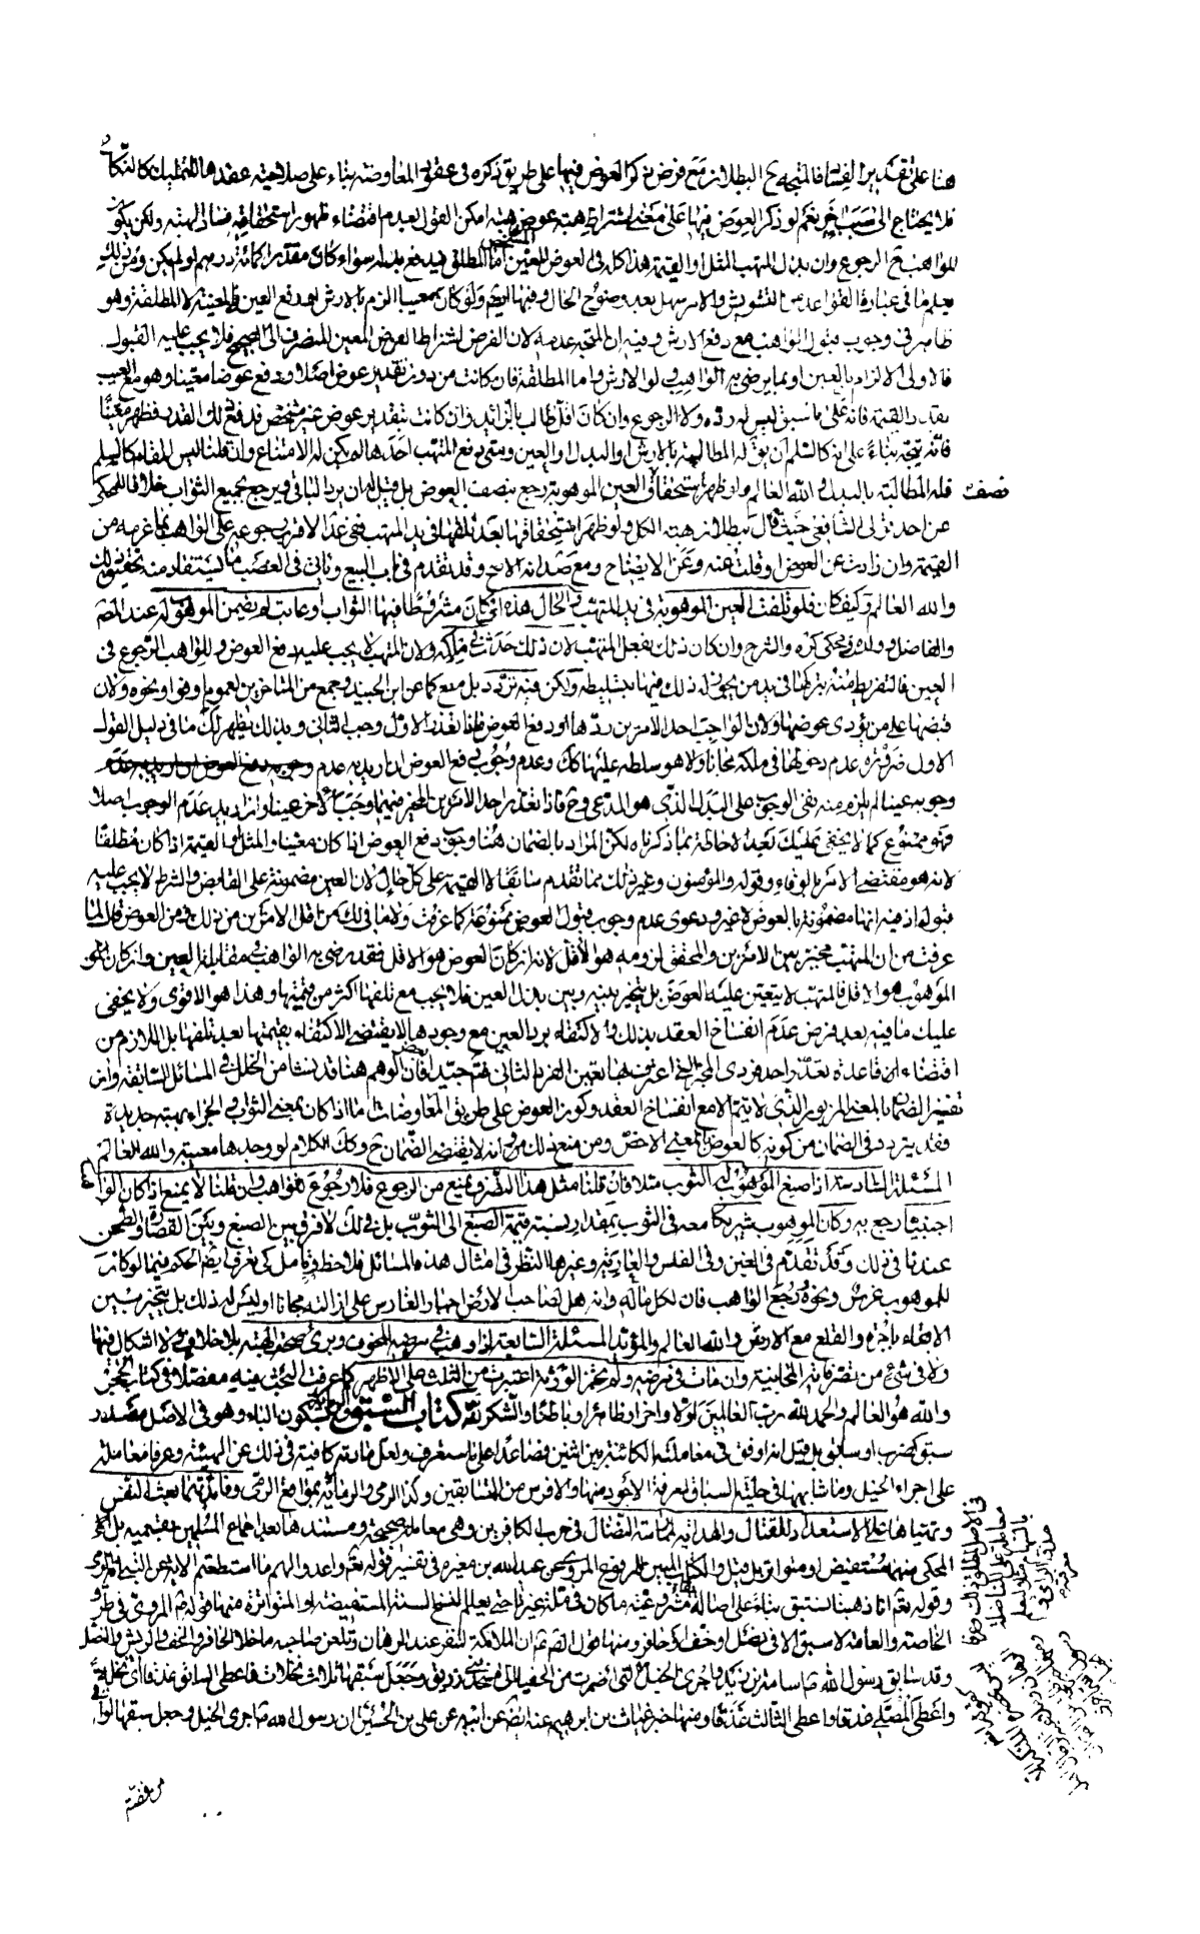 هنا على تقدير الفساد فالمتجه ح البطلان مع فرض ذكر العوض فيها على طريق ذكره في عقود المعاوضة بناء على صلاحية عقدها للتمليك كالنكاح
فلا يحتاج الى سبب اخر نعم لو ذكر العوض فيها على معنى اشتراط هبته عوض هبته امكن القول بعدم اقتضاء ظهور استحقاقه فساد الهبة ولكن يكون
للواهب ح الرجوع وان بذل المتهب المثل او القيمة هذا كله في العوض المعين المشخص اما المطلق فيدفع بدله سواء كان مقدرا كمائة درهم او لم يكن ومن ذلك
يعلم ما في عبارة القواعد من التشويش والامر سهل بعد وضوح الحال وفيها ايضا ولو كان معيبا الزم بالارش او دفع العين في المعينة لا المطلقة وهو
ظاهر في وجوب قبول الواهب مع دفع الارش وفيه ان المتجه عدمه لان الفرض اشتراط العوض المعين المنصرف الى الصحيح فلا يجب عليه القبول
فالاولى الالزام بالعين او بما يرضى به الواهب ولو الارش واما المطلقة فان كانت من دون تقدير عوض اصلا ودفع عوضا معينا وهو مع العيب
بقدر القيمة فانه على ما سبق ليس له رده ولا الرجوع وان كان اقل طالب بالزايد وان كانت بتقدير عوض غير مشخص فدفع ذلك القدر فظهر معيبا
فانه يتجه بناء على انه كالسلم ان يق له المطالبة بالارش او البدل او العين ومتى دفع المتهب احدها لم يكن له الامتناع وان قلنا ليس المقام كالسلم
فله المطالبة بالبدل والله العالم ولو ظهر استحقاق نصف العين الموهوبة رجع بنصف العوض بل قيل له ان يرد الباقي ويرجع بجميع الثواب خلافا للمحكي
عن احد قولي الشافعي حيث قال ببطلان هبة الكل ولو ظهر استحقاقها بعد تلفها في يد المتهب ففي عد الاقرب رجوعه على الواهب بما غرمه من
القيمة وان زادت عن العوض او قلت عنه وعن الايضاح ومع صد انه الاصح وقد تقدم في باب البيع وياتي في الغصب ما يستفاد منه تحقيق ذلك
والله العالم وكيف كان فلو تلفت العين الموهوبة في يد المتهب والحال هذه اي كان مشروطا فيها الثواب او عابت لم يضمن الموهوب له عند المصنف
والفاضل وولده ومحكي كره والشرح وان كان ذلك بفعل المتهب لان ذلك حدث في ملكه ولان المتهب لا يجب عليه دفع العوض وللواهب الرجوع في
العين فالتفريط منه بتركها في يد من يجوز له ذلك فيها بتسليطه ولكن فيه تردد بل منع كما عن ابن الجنيد وجمع من المتاخرين لعموم اوفوا ونحوه ولان
قبضها على من يؤدى عوضها ولان الواجب احد الامرين ردها او دفع العوض فاذا تعذر الاول وجب الثاني وبذلك يظهر لك ما في دليل القول
الاول ضرورة عدم دخولها في ملكه مجانا ولا هو سلطه عليها كك وعدم وجوب دفع العوض ان اريد به عدم
وجوبه عينا لم يلزم منه نفي الوجوب على البدل الذي هو المدعى وح فاذا تعذر احد الامرين المخير فيهما وجب الاخر عينا وان اريد عدم الوجوب اصلا
فهو ممنوع كما لا يخفى عليك بعد الاحاطة بما ذكرناه لكن المراد بالضمان هنا وجوب دفع العوض اذا كان معينا والمثل او القيمة اذا كان مطلقا
لانه هو مقتضى الامر بالوفاء وقوله والمؤمنون وغير ذلك مما تقدم سابقا لا القيمة على كل حال لان العين مضمونة على القابض والشرط لا يجب عليه
قبوله اذ فيه انها مضمونة بالعوض لا غير ودعوى عدم وجوب قبول العوض ممنوعة كما عرفت ولا ما في لك من اقل الامرين من ذلك ومن العوض قال لما
عرفت من ان المتهب مخير بين الامرين والمحقق لزومه هو الاقل لانه ان كان العوض هو الاقل فقد رضى به الواهب في مقابلة العين وان كان
الموهوب هو الاقل فالمتهب لا يتعين عليه العوض بل يتخير بينه وبين بذل العين فلا يجب مع تلفها اكثر من قيمتها وهذا هو الاقوى ولا يخفى
عليك ما فيه بعد فرض عدم انفساخ العقد بذلك والاكتفاء برد العين مع وجودها لا يقتضى الاكتفاء بقيمتها بعد تلفها بل اللازم من
اقتضاء ان قاعدة تعذر احد فردى المخير التي اعترف بها تعين الفرد الثاني فتم جيدا فان الوهم هنا قد نشا من الخلل في المسائل السابقة وان
تفسير الضمان بالمعنى المزبور الذي لا يتم الا مع انفساخ العقد وكون العوض على طريق المعاوضات اما اذا كان بمعنى الثواب والجزاء بهبة جديدة
فقد يتردد في الضمان من كونه كالعوض بالمعنى الاخص ومن منع ذلك وانه لا يقتضى الضمان ح وكك الكلام لو وجدها معيبة والله العالم
المسئلة السادسة اذا صبغ الموهوب له الثوب مثلا فان قلنا مثل هذا التصرف يمنع من الرجوع فلا رجوع للواهب وان قلنا لا يمنع اذا كان الواهب
اجنبيا رجع به وكان الموهوب شريكا معه في الثوب بمقدار نسبة قيمة الصبغ الى الثوب بل في لك لا فرق بين الصبغ وبين القصارة والطحن
عندنا في ذلك وقد تقدم في العين وفي الفلس والعارية وغيرها النظر في امثال هذه المسائل فلاحظ وتامل كى تعرف ايضا الحكم فيما لو كان
للموهوب غرس ونحوه ورجع الواهب فان لكل ماله وانه هل لصاحب الارض اجبار الغارس على ازالته مجانا او ليس له ذلك بل يتخير بين
الابقاء باجرة والقلع مع الارش والله العالم والمؤيد المسئلة السابعة اذا وهب في مرضه المخوف وبرئ صحت الهبة بلا خلاف ولا اشكال فيها
ولا في شئ من تصرفاته المجانية وان مات في مرضه ولم تجز الورثة اعتبرت من الثلث على الاظهر كما عرفت البحث فيه مفصلا في كتاب الحجر
والله هو العالم والحمد لله رب العالمين اولا واخرا وظاهرا وباطنا والشكر لله كتاب السبق والرماية بسكون الباء وهو في الاصل مصدر
سبق كضرب او سابق بل قيل انه اوفق في معاملته الكائنة بين اثنين فصاعدا على ما ستعرف ولعل مادته كافية في ذلك عن الهيئة وعرفا معاملة
على اجراء الخيل وما شابهها في حلبة السباق لمعرفة الاجود منها والافرس من المتسابقين وكذا الرمى والرماية بمواقع الرمى وفائدتهما بعث النفس
وتهيئها على الاستعداد للقتال والهداية لممارسة النضال في حرب الكافرين وهى معاملة صحيحة ومستندها بعد اجماع المسلمين بقسميه بل
المحكى منهما مستفيض او متواتر بل قيل والكتاب المبين المروي عن عبد الله بن مغيرة في تفسير قوله تعم واعدوا لهم ما استطعتم الاية عن النبي
وقوله تعم انا ذهبنا نستبق بناء على اصالة مشروعيته ما كان في ملة غيرنا حتى يعلم النسخ السنة المستفيضة او المتواترة منها قوله ص المروي في طرق
الخاصة والعامة لا سبق الا في نصل او خف او حافر ومنها قول الص ع ان الملائكة لتنفر عند الرهان وتلعن صاحبه ما خلا الحافر والخف والريش والنصل
وقد سابق رسول الله ص اسامة بن زيد واجرى الخيل التي اضمرت من الحفياء الى مسجد بنى زريق وجعل سبقها ثلاث نخلات فاعطى السابق عذقا
واعطى المصلى عذقا واعطى الثالث عذقا ومنها خبر غياث بن ابراهيم عنه ايضا عن ابيه عن على بن الحسين ان رسول الله ص اجرى الخيل وجعل سبقها اواقى
نصف
من فضة